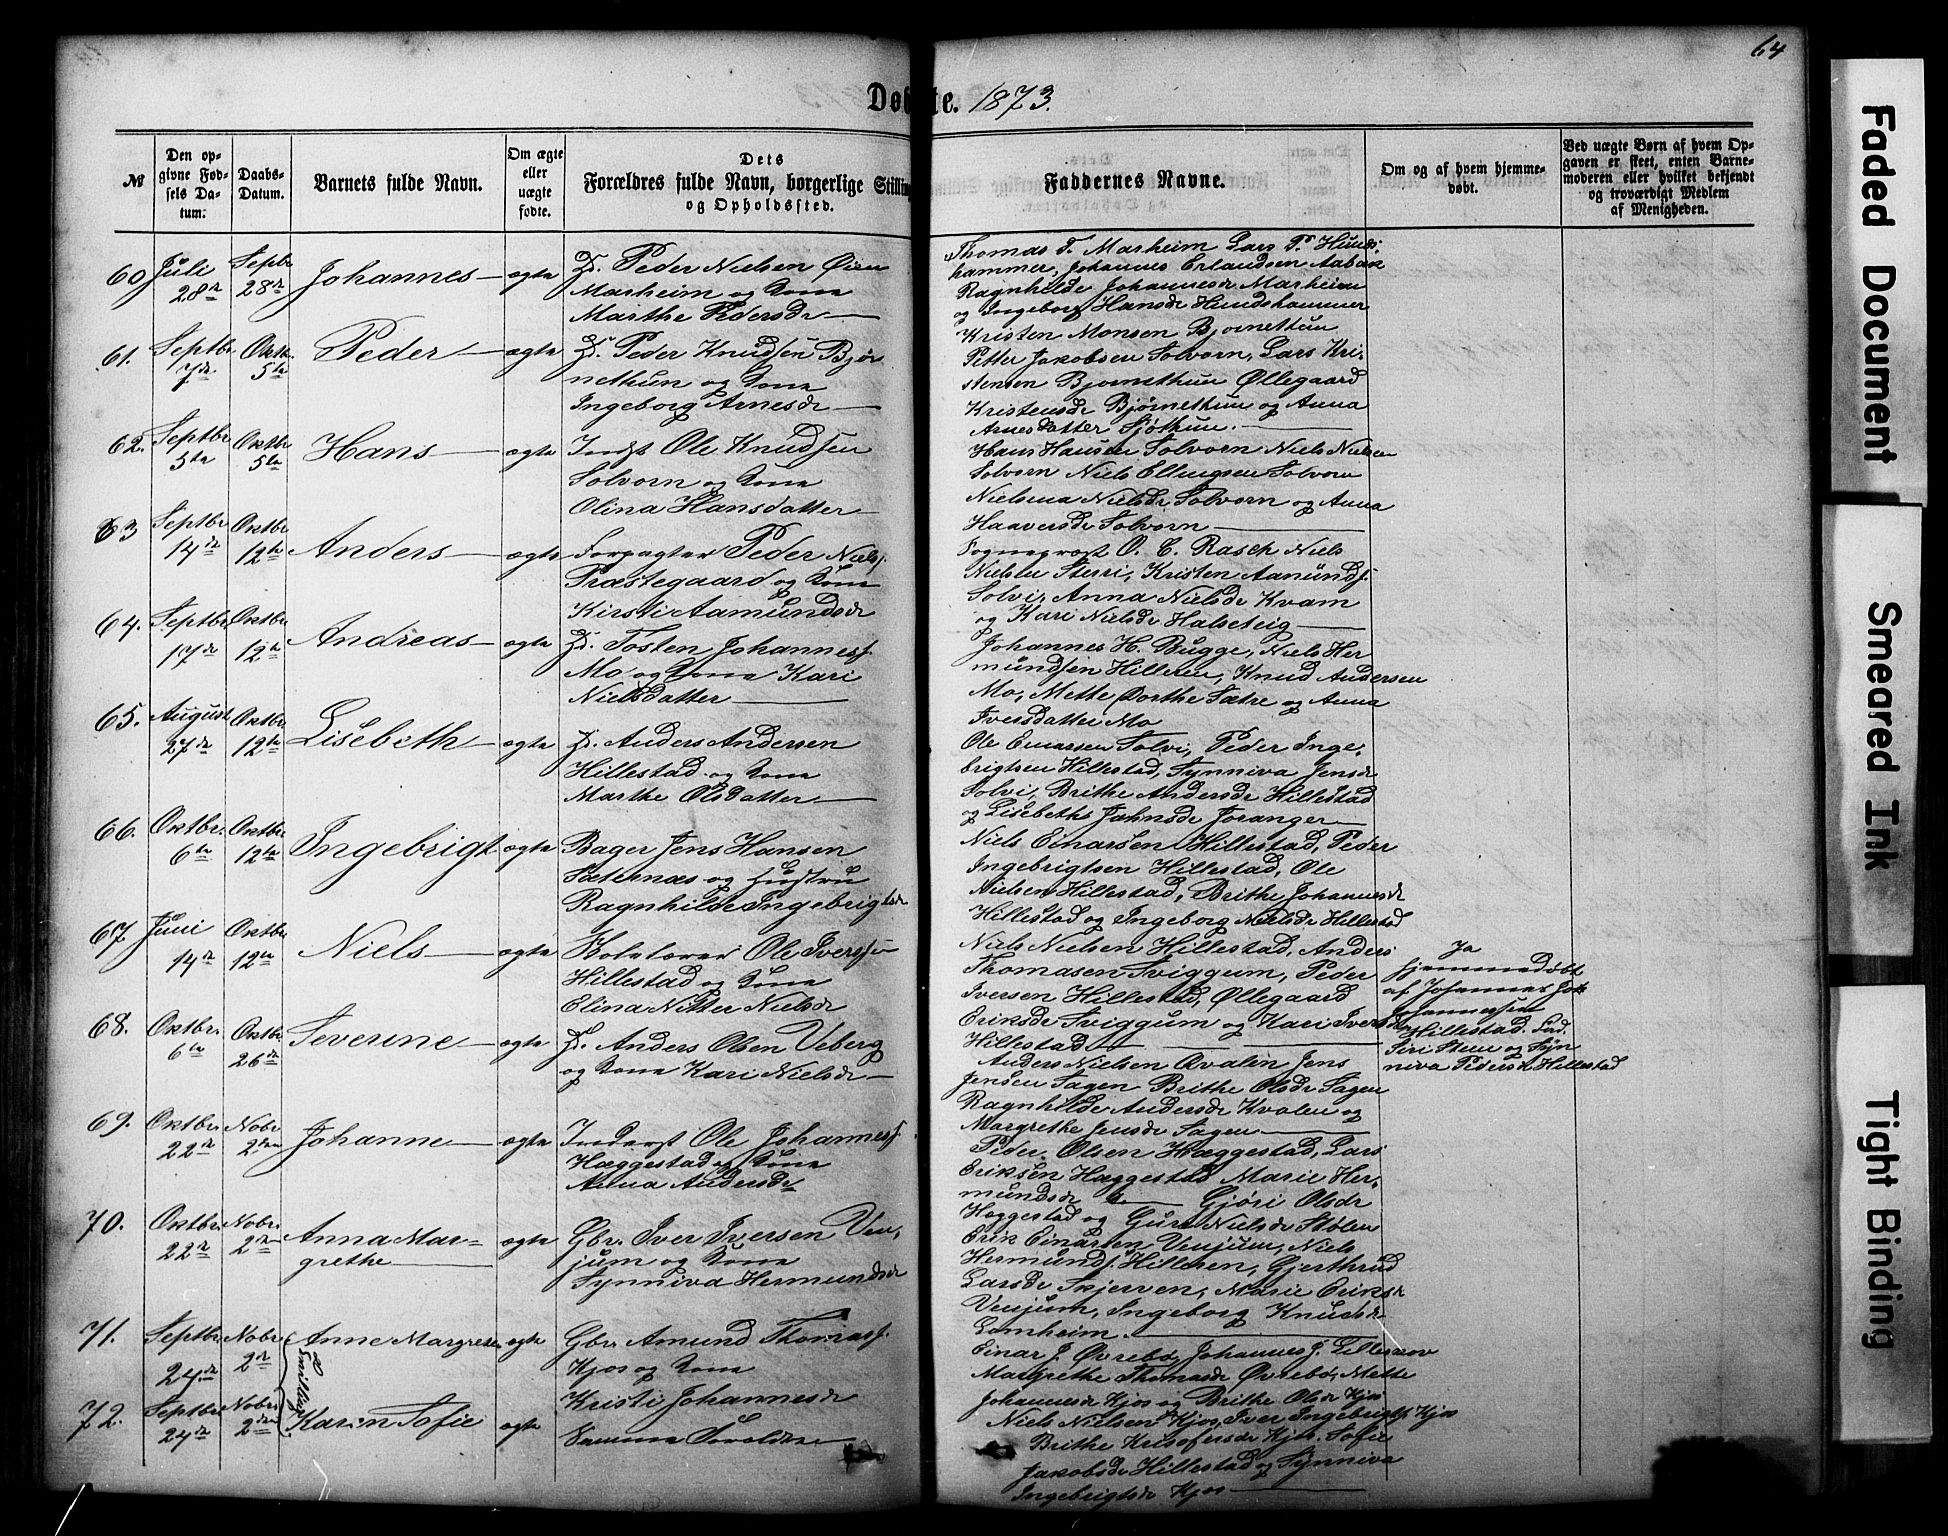 64
Døbte. 1873.
№
Den op-
givne Fød-
sels Da-
tum.
Daabs-
Datum.
Barnets fulde Navn.
Om ægte
eller
uægte
fødte.
Dets
Forældres fulde Navn, borgerlige Stilling
og Opholdssted.
Faddernes Navne.
Om og af hvem hjemme-
døbt.
Ved uægte Børn af hvem Op-
gaven er skeet, enten Barne-
moderen eller hvilket bekjendt
og troværdigt Medlem
af Menigheden.
60 Juli 28de Septbr 28de Johannes ægte
Peder Nielsen Øien
Marheim og Kone
Marthe Pedersdr
Thomas T. Marheim Lars P. Hunds-
hammer, Johannes Erlandsen Aabak
Ragnhilde Johannesdr Marheim
og Ingeborg Hansdr Hundshammer
61. Septbr 7de Oktbr 5te Peder ægte
Peder Knudsen Bjør
nethun og Kone
Ingeborg Arnesdr
Kristen Monsen Bjørnethun
Petter Jakobsen Solvorn, Lars Kri-
stensen Bjørnethun Øllegaard
Kristensdr Bjørnethun og Anna
Arnesdatter Sjøthun.
62. Septbr 5te Oktbr 5te Hans ægte
Indst Ole Knudsen
Solvorn og Kone
Olina Hansdatter
Hans Hansen Solvorn Niels Nielsen
Solvorn Niels Ellingsen Solvorn
Nielsina Nielsdr Solvorn og Anna
Haaversdr Solvorn
63 Septbr 14de Oktbr 12te Anders ægte
Forpagter Peder Niels.
Præstegaard og Kone
Kirsti Aamundsdr
Sognepræst O. C. Rasch Niels
Nielsen Sterri, Kristen Aamunds.
Solvi, Anna Nielsdr Kvam
og Kari Nielsdr Halseteig
64. Septbr 17de Oktbr 12te Andreas ægte
Tosten Johanness.
Mo og Kone Kari
Nielsdatter
Johannes H. Bugge, Niels Her
mundsen Hillern, Knud Andersen
Mo, Mette Dorthe Sætre og Anna
Iversdatter Mo
65. August 27de Oktbr 12te Lisebeth ægte
Anders Andersen
Hillestad og Kone
Marthe Olsdatter
Ole Einarsen Solvi, Peder Inge-
brigtsen Hillestad, Synniva Jensdr
Solvi, Brithe Andersdr Hillestad
og Lisebeths Jahnsdr Joranger
66. Oktbr. 6te Oktbr. 12te Ingebrigt ægte
Bager Jens Hansen
Sæternæs og Hustru
Ragnhilde Ingebrigtsdr
Niels Einarsen Hillestad, Peder
Ingebrigtsen Hillestad, Ole
Nielsen Hillestad, Brithe Johannesdr
Hillestad og Ingeborg Nielsdr Hillestad
67 Juni 14de Oktbr 12te Niels ægte
Ole Iversen
Hillestad og Kone
Elina Nitter Nielsdr
Niels Nielsen Hillestad, Anders
Thomasen Sviggum, Peder
Iversen Hillestad, Øllegaard
Eriksdr Sviggum og Kari Iversdr
Hillestad
Ja
hjemmedøbt
af Johannes
Johannessen
Hillestad. Fad.
Siri Steen og Syn
niva Pedersdr Hillestad
68. Oktbr. 6te Oktbr 26de Severine ægte
Anders Olsen Veberg
og Kone Kari Nielsdr
Anders Nielsen Qvalen Jens
Jensen Sagen Brithe Olsdr Sagen
Ragnhilde Andersdr Kvalen og
Margrethe Jensdr Sagen
69. Oktbr 22de Nobr 2den Johanne ægte
Inderst Ole Johanness.
Hæggestad og Kone
Anna Andersdr
Peder Olsen Hæggestad, Lars
Eriksen Hæggestad Marie Her-
mundsdr Gjøri Olsdr
Heggestad og Guri Nielsdr Stølen
70. Oktbr 22de Nobr. 2den Anna Mar-
grethe ægte
Gbr. Iver Iversen Ven-
jum og Kone
Synniva Hermundsdr
Erik Einarsen Venjum, Niels
Hermunds. Hillern, Gjerthrud
Larsdr Skjerven, Marie Eriksdr
Venjum, Ingeborg Knudsdr
Lomheim.
71. Septbr 24de Nobr 2de Anne Margrete ægte
Tvillinger
Gbr. Amund Thomass.
Kjos og Kone
Kristi Johannesdr
Einar J. Øvrebø, Johannes J. Lillesæov
Margrethe Thomasdr Øvrebø, Mette
Johannesdr Kjos og Brithe Olsdr Kjos
72. Septbr 24de Nobr 2den Karin Sofie ægte
Samme Foreldre
Niels Nielsen Kjos, Iver Ingebrigts. Kjos
Brithe Kristofersdr Kjos. Sofie
Jakobsdr Hillestad og Synniva
Ingebrigtsdr Kjos
Faded Document
Smeared Ink
Tight Binding